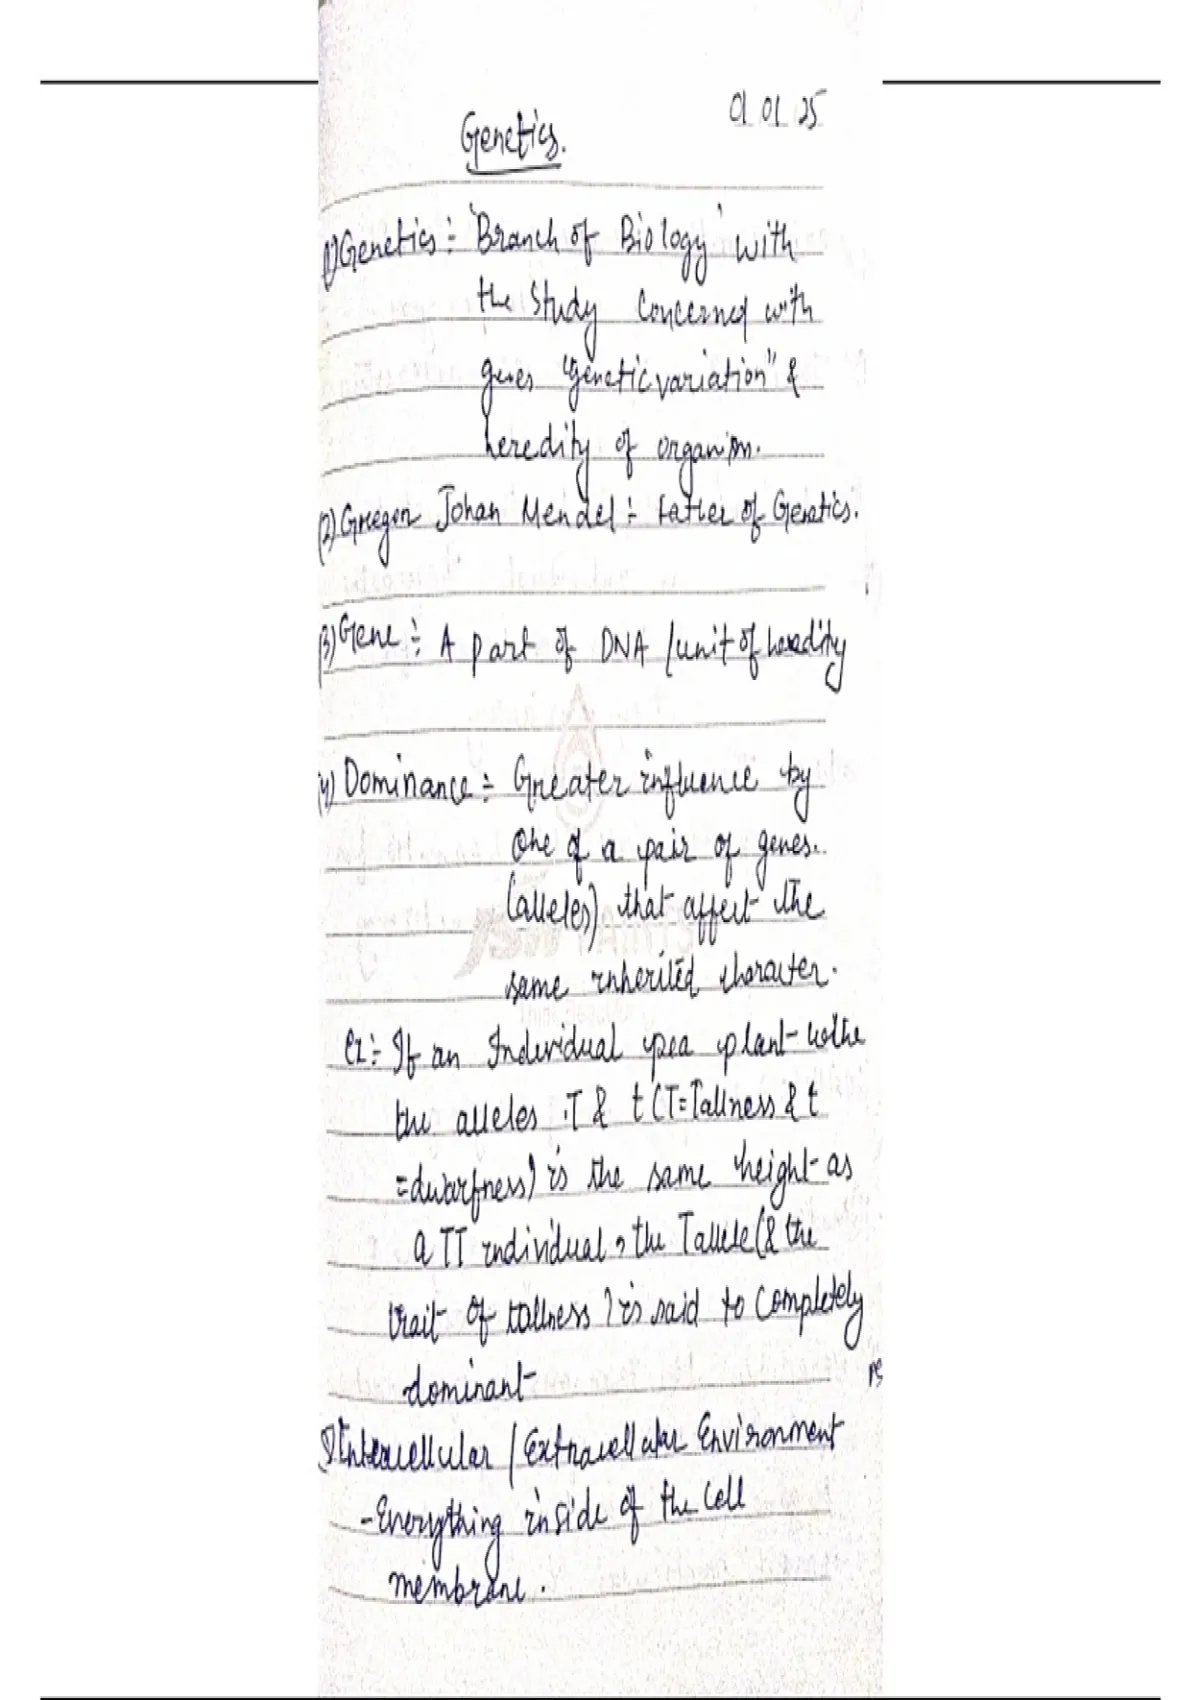 01 01 25
Genetics.
1) Genetics :- 'Branch of Biology' with
the Study Concerned with
genes "genetic variation" &
heredity of organism.
(2) Gregor Johan Mendel :- Father of Genetics.
(3) Gene :- A part of DNA / unit of heredity
(4) Dominance :- Greater influence by
One of a pair of genes.
(alleles) that affect the
same inherited character.
Ex :- If an Individual pea plant
the alleles T & t (T=Tallness & t
=dwarfness) is the same height as
a TT individual, the T allele (& the
trait of tallness) is said to Completely
dominant
5) Intercellular / Extracellular Environment
- Everything inside of the Cell
membrane.